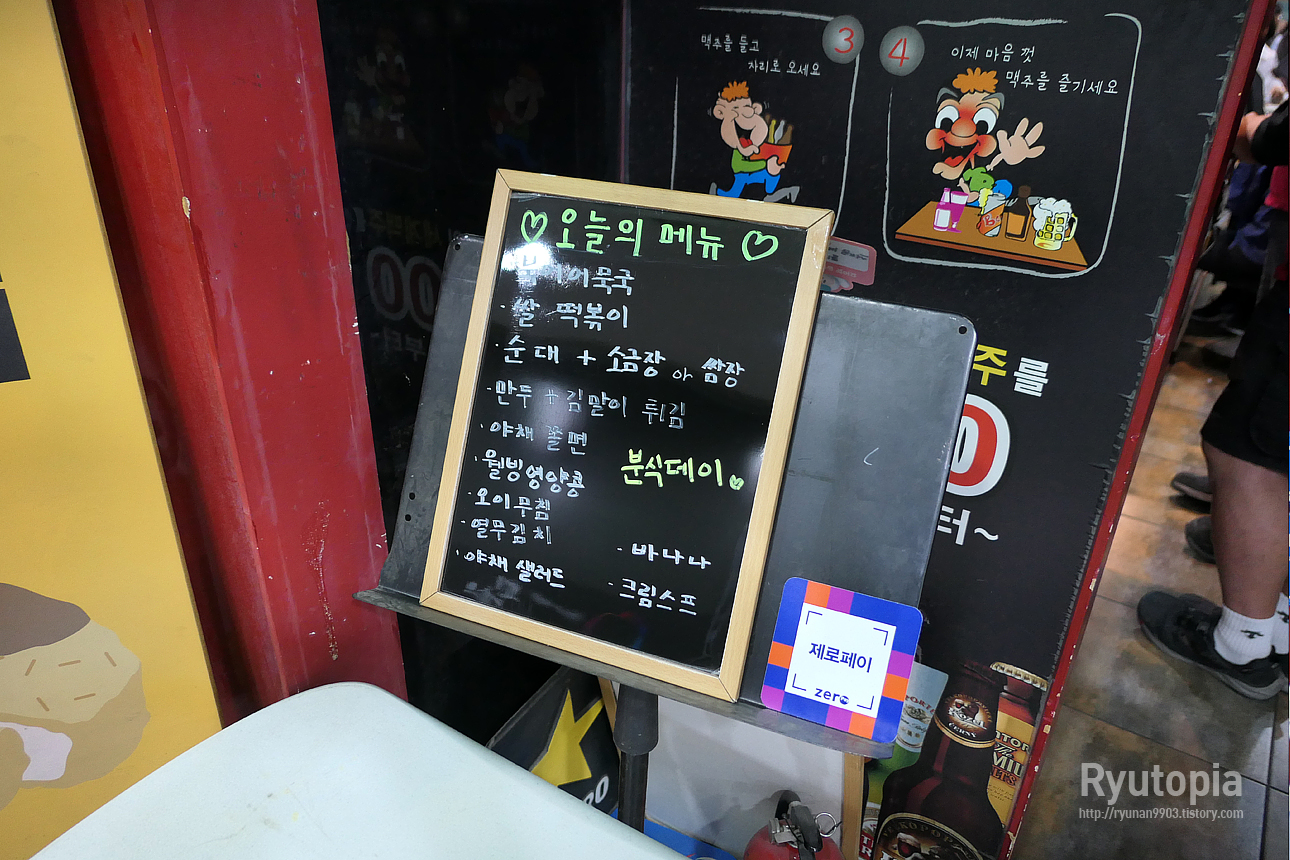 맥주를 들고
자리로 오세요
3
4
이제 마음 껏
맥주를 즐기세요
오늘의 메뉴
· 쌀 떡볶이
· 순대 + 소금장 or 쌈장
· 만두 + 김말이 튀김
· 야채 쫄면
· 웰빙영양콩
분식데이
· 오이무침
· 열무김치
· 야채 샐러드
· 바나나
· 크림스프
주를
0
터~
제로페이
zero
Ryutopia
http://ryunan9903.tistory.com